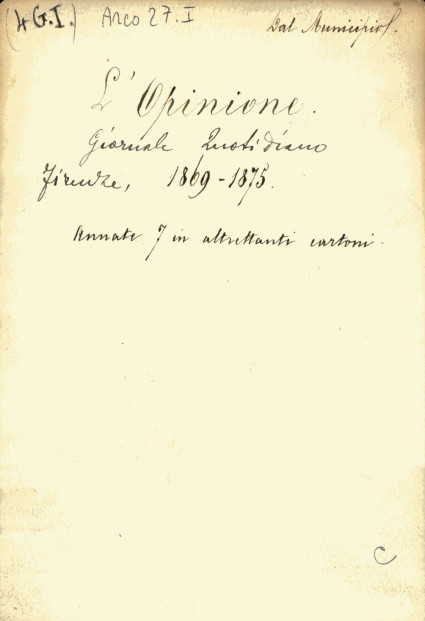 (4 G.I.) Arco 27. I
Dal Municipio.
L'Opinione.
Giornale Quotidiano
Firenze, 1869-1875.
Annate 7 in altrettanti cartoni.
C